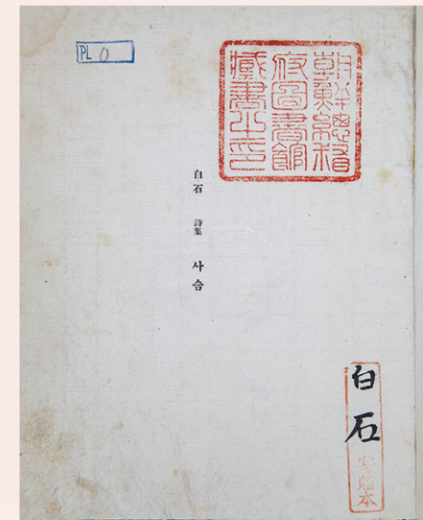 PL 0
朝鮮總督
府圖書館
藏書之印
白石 詩集 사슴
白石
本